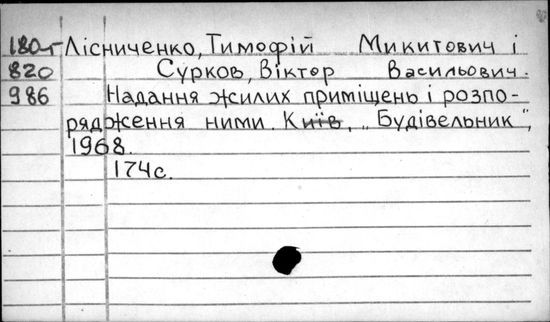 180-т Лісниченко, Тимофій Микитович і
820 Сурков, Віктор Васильович.
986 Надання жилих приміщень і розпо-
рядження ними. Київ, „Будівельник",
1968.
174с.